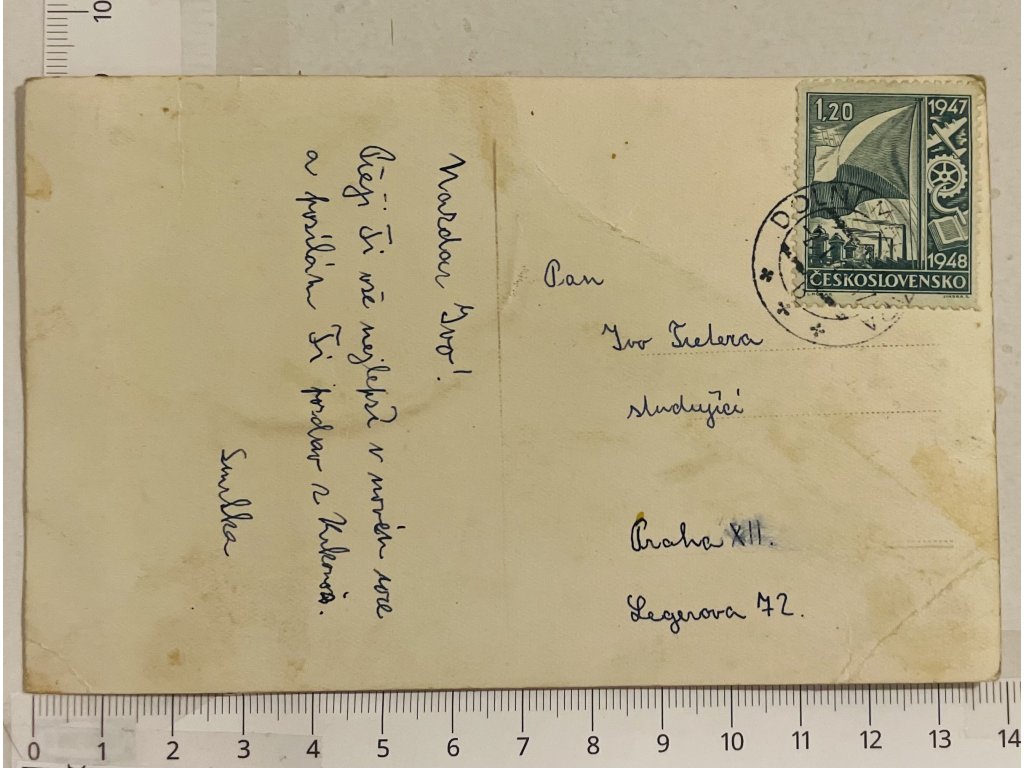 Nazdar Ivo!
Přeji Ti vše nejlepší v novém roce
a posílám Ti pozdav z Krkonoš.
Smrčka
Pan
Ivo
studující
Praha XII.
Legerova 72.
1,20
1947
1948
ČESKOSLOVENSKO
DOLNÍ
10
0 1 2 3 4 5 6 7 8 9 10 11 12 13 14